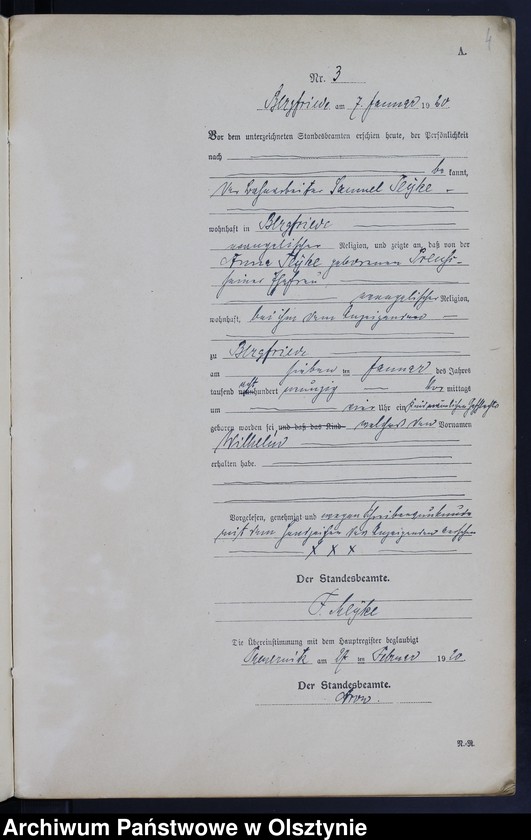 4
A.
Nr. 3
Bergfriede am 7. Januar 1920.
Vor dem unterzeichneten Standesbeamten erschien heute, der Persönlichkeit
nach
be kannt,
der Bahnarbeiter Samuel
wohnhaft in Bergfriede
evangelischer Religion, und zeigte an, daß von der
Anna geborenen
seiner Ehefrau
evangelischer Religion,
wohnhaft bei ihm dem Anzeigenden
zu Bergfriede
am sieben ten Januar des Jahres
tausend acht hundert zwanzig Vor mittags
um vier Uhr ein Kind männlichen Geschlechts
geboren worden sei und daß das Kind welches den Vornamen
Wilhelm
erhalten habe.
Vorgelesen, genehmigt und wegen Schreibensunkunde
mit dem Handzeichen des Anzeigenden versehen
x x x
Der Standesbeamte.
F.
Die Übereinstimmung mit dem Hauptregister beglaubigt
am ten Februar 1920.
Der Standesbeamte.
N.-R.
Archiwum Państwowe w Olsztynie